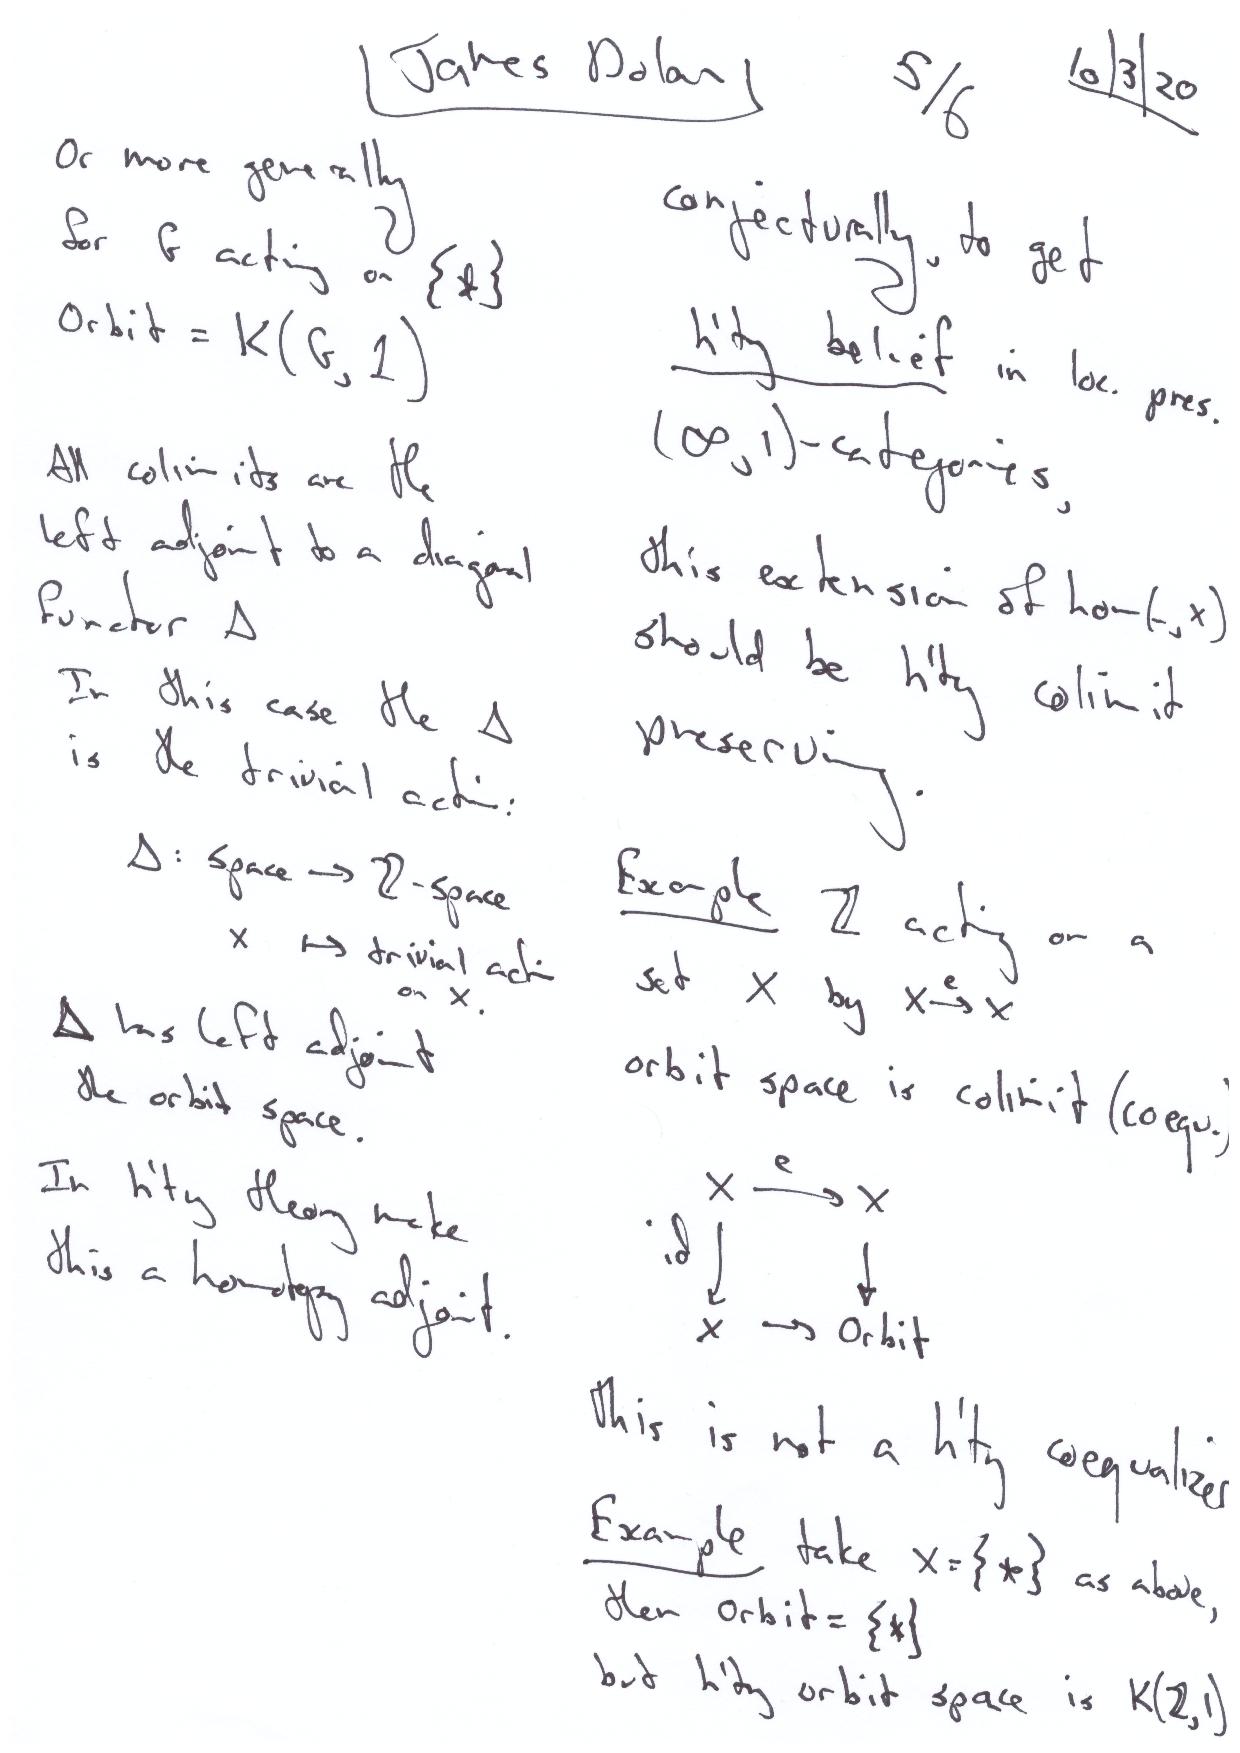 James Dolan 5/6 10/3/20
Or more generally
for G acting on {*}
Orbit = K(G, 1)
All colimits are the
left adjoint to a diagonal
functor Δ
In this case the Δ
is the trivial actn:
Δ: space → ℤ-space
x ↦ trivial actn
on x.
Δ has left adjoint
the orbit space.
In h'ty theory make
this a homotopy adjoint.
conjecturally, to get
h'ty belief in loc. pres.
(∞,1)-categories,
this extension of hom(-,x)
should be h'ty colimit
preserving.
Example ℤ acting on a
set X by X →e X
orbit space is colimit (coequ.)
X →e X
id ↓ ↓
X → Orbit
this is not a h'ty coequalizer
Example take X={*} as above,
then Orbit = {*}
but h'ty orbit space is K(ℤ,1)